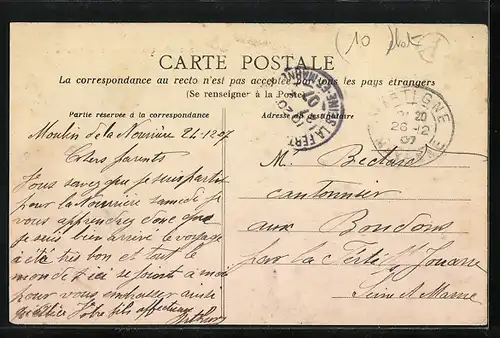 (10
CARTE POSTALE
La correspondance au recto n'est pas acceptée par tous les pays étrangers
(Se renseigner à la Poste)
Partie réservée à la correspondance
Moulin de la Nourrice 24-12-07
Chers parents
Vous savez que je suis parti
pour la Nourrice samedi je
vous apprendrez donc que
je suis bien arrivé le voyage
a été très bon et tout le
monde ici se joint à moi
pour vous embrasser ainsi
Votre fils affectueux
Adresse du destinataire
M.
cantonnier
aux Bondons
par la Ferté s/ Jouarre
Seine et Marne
LA FERTE
SEINE-ET-MARNE
07
20
26-12
07